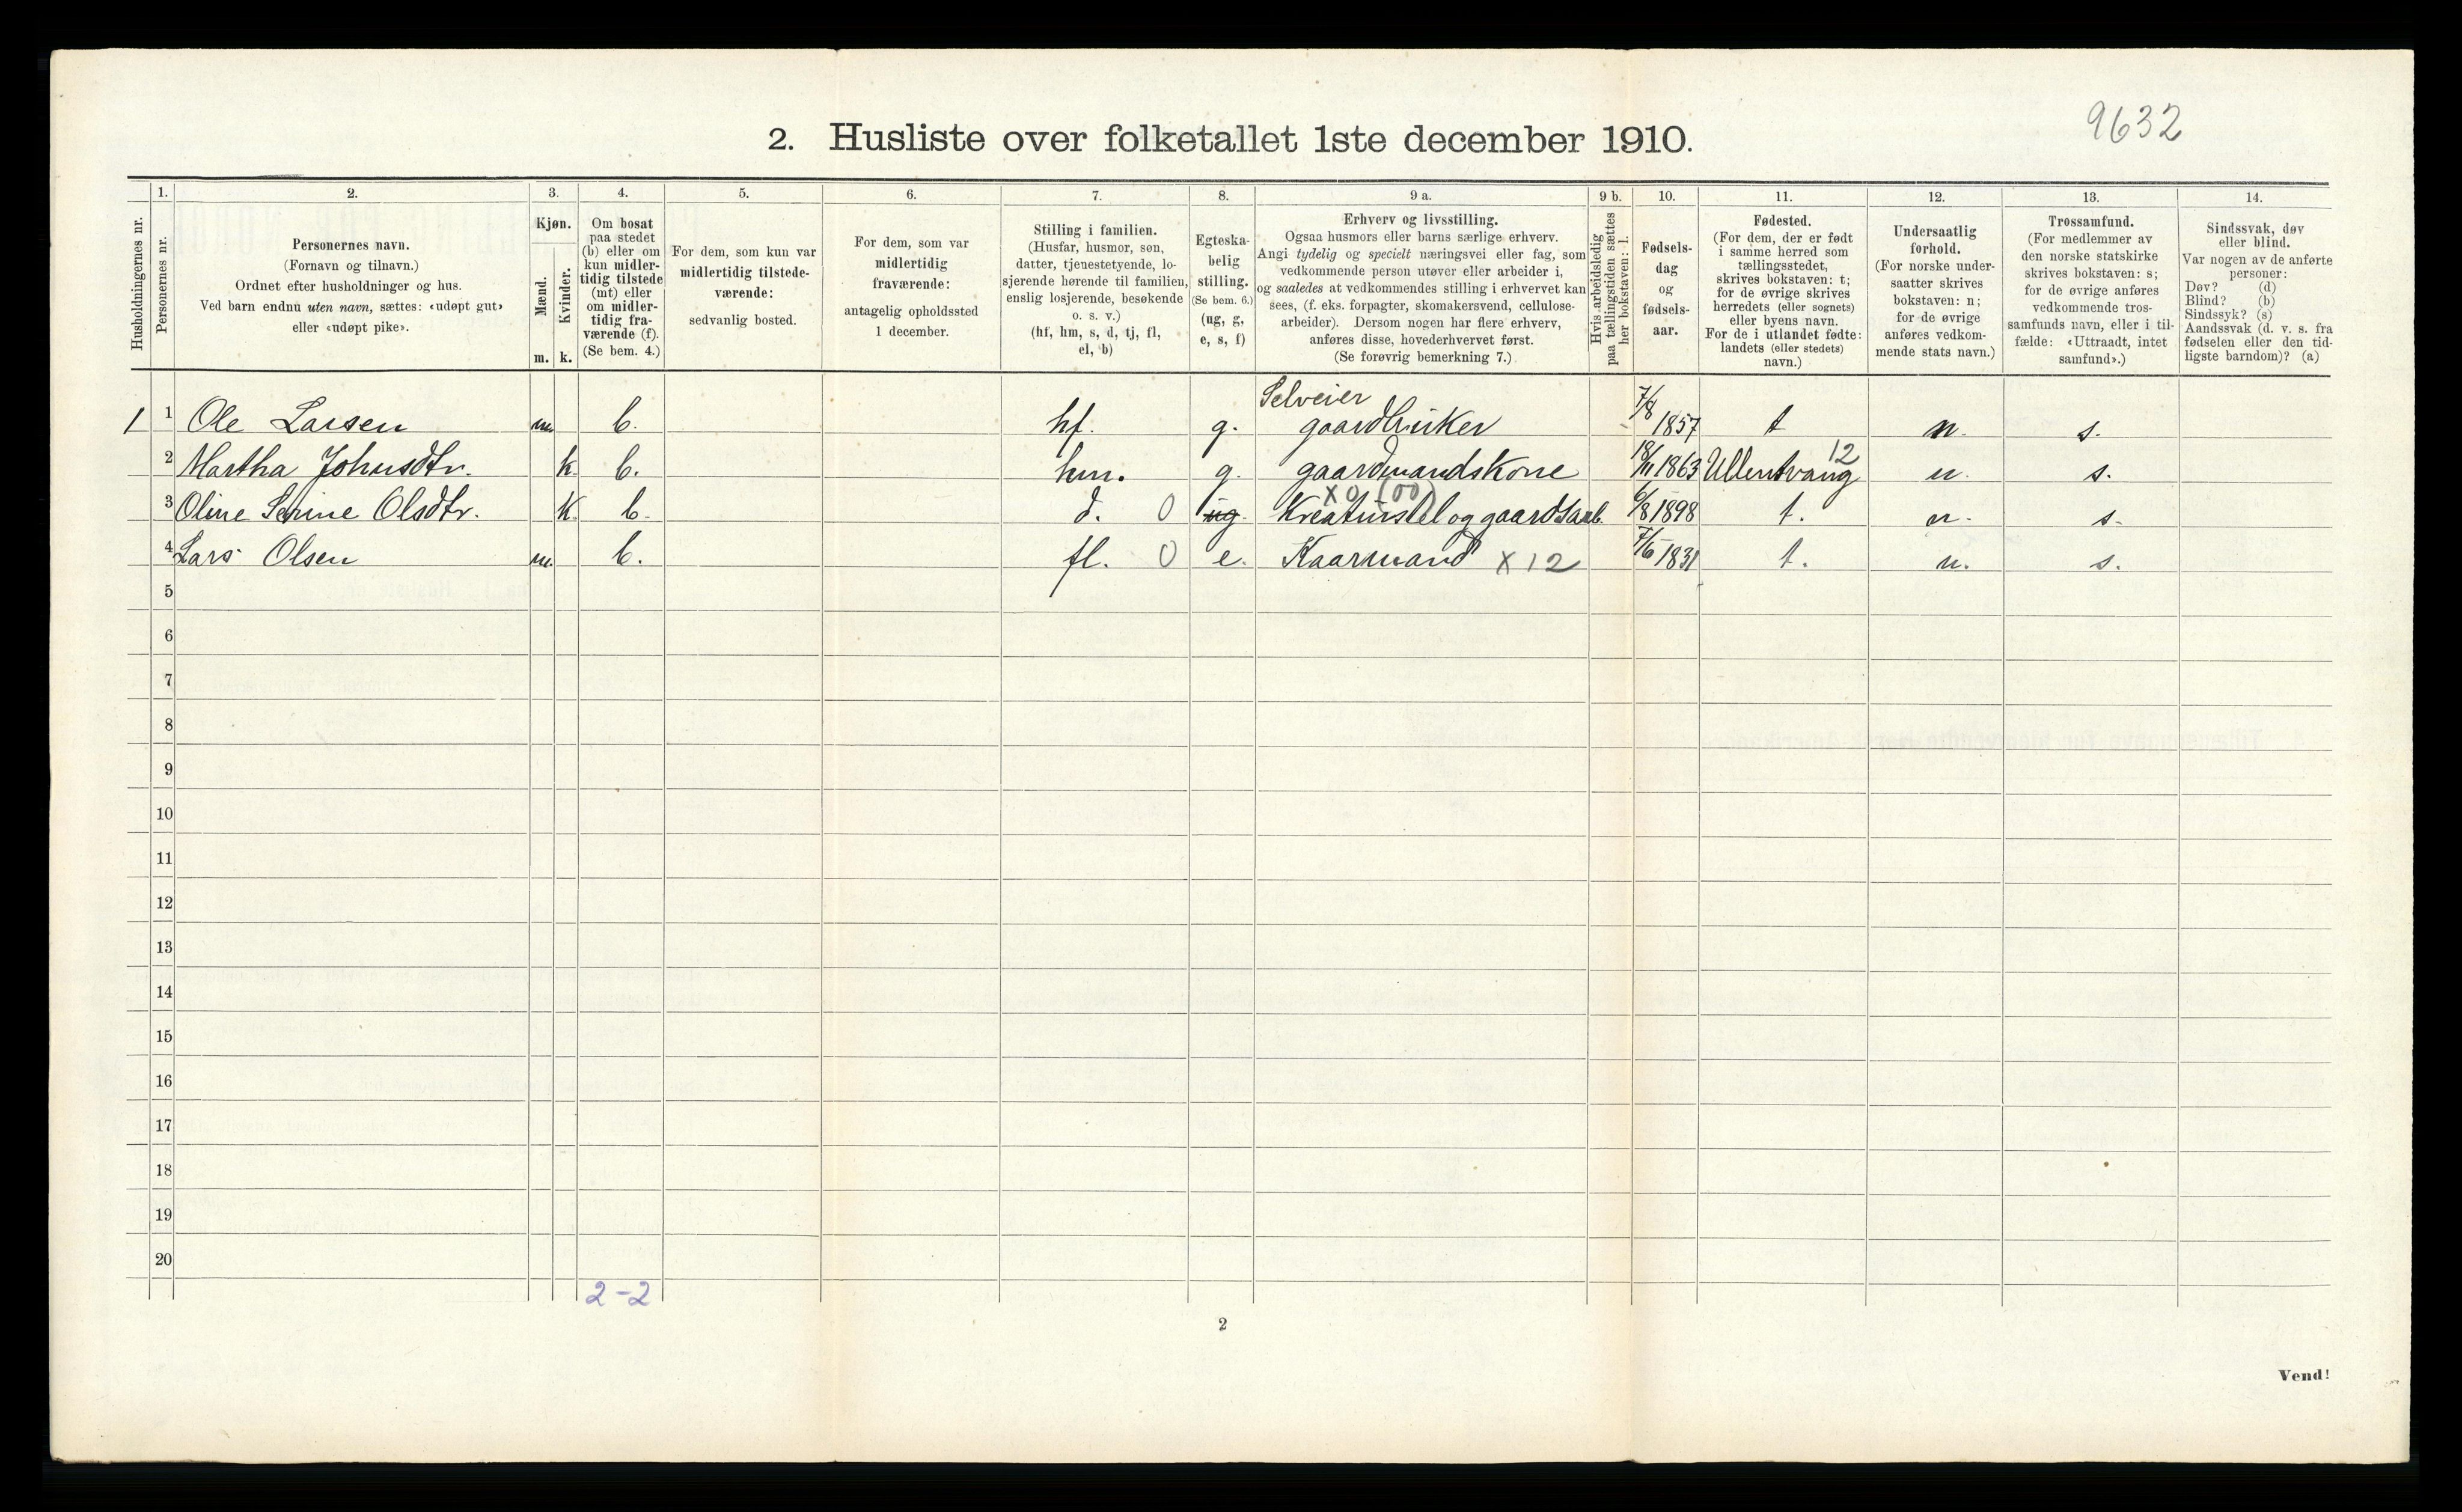 9632
2. Husliste over folketallet 1ste december 1910.
1. 2. 3. 4. 5. 6. 7. 8. 9 a. 9 b. 10. 11. 12. 13. 14.
Husholdningernes nr.
Personernes nr.
Personernes navn.
(Fornavn og tilnavn.)
Ordnet efter husholdninger og hus.
Ved barn endnu uten navn, sættes: «udøpt gut»
eller «udøpt pike».
Kjøn.
Mænd.
Kvinder.
m. k.
Om bosat
paa stedet
(b) eller om
kun midler-
tidig tilstede
(mt) eller
om midler-
tidig fra-
værende (f).
(Se bem. 4.)
For dem, som kun var
midlertidig tilstede-
værende:
sedvanlig bosted.
For dem, som var
midlertidig
fraværende:
antagelig opholdssted
1 december.
Stilling i familien.
(Husfar, husmor, søn,
datter, tjenestetyende, lo-
sjerende hørende til familien,
enslig losjerende, besøkende
o. s. v.)
(hf, hm, s, d, tj, fl,
el, b)
Egteska-
belig
stilling.
(Se bem. 6.)
(ug, g,
e, s, f)
Erhverv og livsstilling.
Ogsaa husmors eller barns særlige erhverv.
Angi tydelig og specielt næringsvei eller fag, som
vedkommende person utøver eller arbeider i,
og saaledes at vedkommendes stilling i erhvervet kan
sees, (f. eks. forpagter, skomakersvend, cellulose-
arbeider). Dersom nogen har flere erhverv,
anføres disse, hovederhvervet først.
(Se forøvrig bemerkning 7.)
Hvis arbeidsledig
paa tællingstiden sættes
her bokstaven: l.
Fødsels-
dag
og
fødsels-
aar.
Fødested.
(For dem, der er født
i samme herred som
tællingsstedet,
skrives bokstaven: t;
for de øvrige skrives
herredets (eller sognets)
eller byens navn.
For de i utlandet fødte:
landets (eller stedets)
navn.)
Undersaatlig
forhold.
(For norske under-
saatter skrives
bokstaven: n;
for de øvrige
anføres vedkom-
mende stats navn.)
Trossamfund.
(For medlemmer av
den norske statskirke
skrives bokstaven: s;
for de øvrige anføres
vedkommende tros-
samfunds navn, eller i til-
fælde: «Uttraadt, intet
samfund».)
Sindssvak, døv
eller blind.
Var nogen av de anførte
personer:
Døv? (d)
Blind? (b)
Sindssyk? (s)
Aandssvak (d. v. s. fra
fødselen eller den tid-
ligste barndom)? (a)
1 1 Ole Larsen m b. hf. g. Selveier gaardbruker 7/8 1857 t n. s.
2 Martha Johnsdtr. k b. hm. g. gaardmandskone 18/11 1863 Ullensvang 12 n. s.
3 Oline Serine Olsdtr. K. b. d. 0 ug. Kreaturstel og gaardsarb. x0 (00) 6/8 1898 t. n. s.
4 Lars Olsen m b. fl. 0 e. Kaarmand x 12 7/6 1831 t. n. s.
5
6
7
8
9
10
11
12
13
14
15
16
17
18
19
20
2-2
2
Vend!